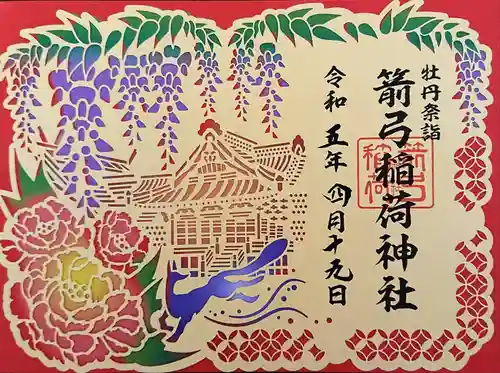 牡丹祭詣
箭弓稲荷神社
箭弓
稲荷
令和五年四月十九日